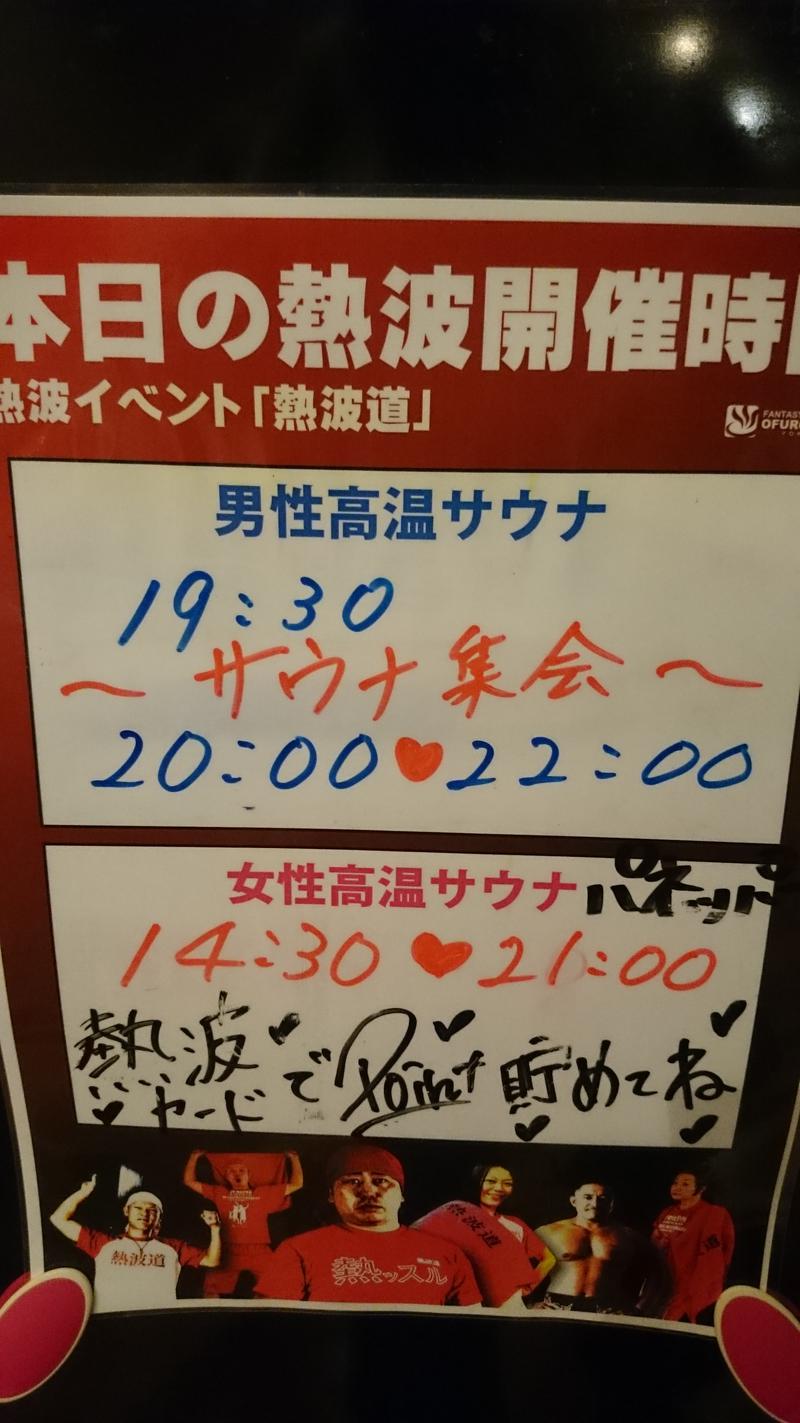 本日の熱波開催時
熱波イベント「熱波道」
FANTASY
OFURO
男性高温サウナ
19:30
～サウナ集会～
20:00♥22:00
女性高温サウナ
14:30♥21:00
熱波
カードでPoint貯めてね
熱波道
熱ッスル
熱波道
道